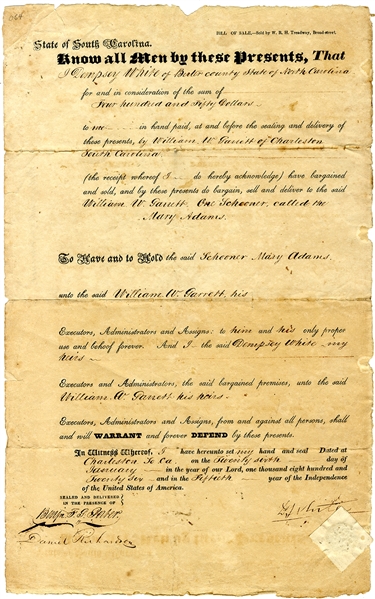 BILL OF SALE.—Sold by W. R. H. Treadway, Broad-street.
State of South Carolina.
Know all Men by these Presents, That
I Dempsey White of county State of North Carolina
for and in consideration of the sum of
Four hundred and Fifty Dollars
to me in hand paid, at and before the sealing and delivery of
these presents, by William W. Garrett of Charleston
South Carolina
(the receipt whereof I do hereby acknowledge) have bargained
and sold, and by these presents do bargain, sell and deliver to the said
William W. Garrett. One Schooner, called the
Mary Adams.
To Have and to Hold the said Schooner Mary Adams.
unto the said William W. Garrett, his
Executors, Administrators and Assigns: to him and his only proper
use and behoof forever. And I the said Dempsey White my
heirs
Executors and Administrators, the said bargained premises, unto the said
William W. Garrett his heirs
Executors, Administrators and Assigns, from and against all persons, shall
and will WARRANT and forever DEFEND by these presents.
In Witness Whereof, I have hereunto set my hand and seal Dated at
Charleston So Ca on the Twenty sixth day of
January in the year of our Lord, one thousand eight hundred and
Twenty Six and in the Fiftieth year of the Independence
of the United States of America.
SEALED AND DELIVERED
IN THE PRESENCE OF
Daniel Richardson